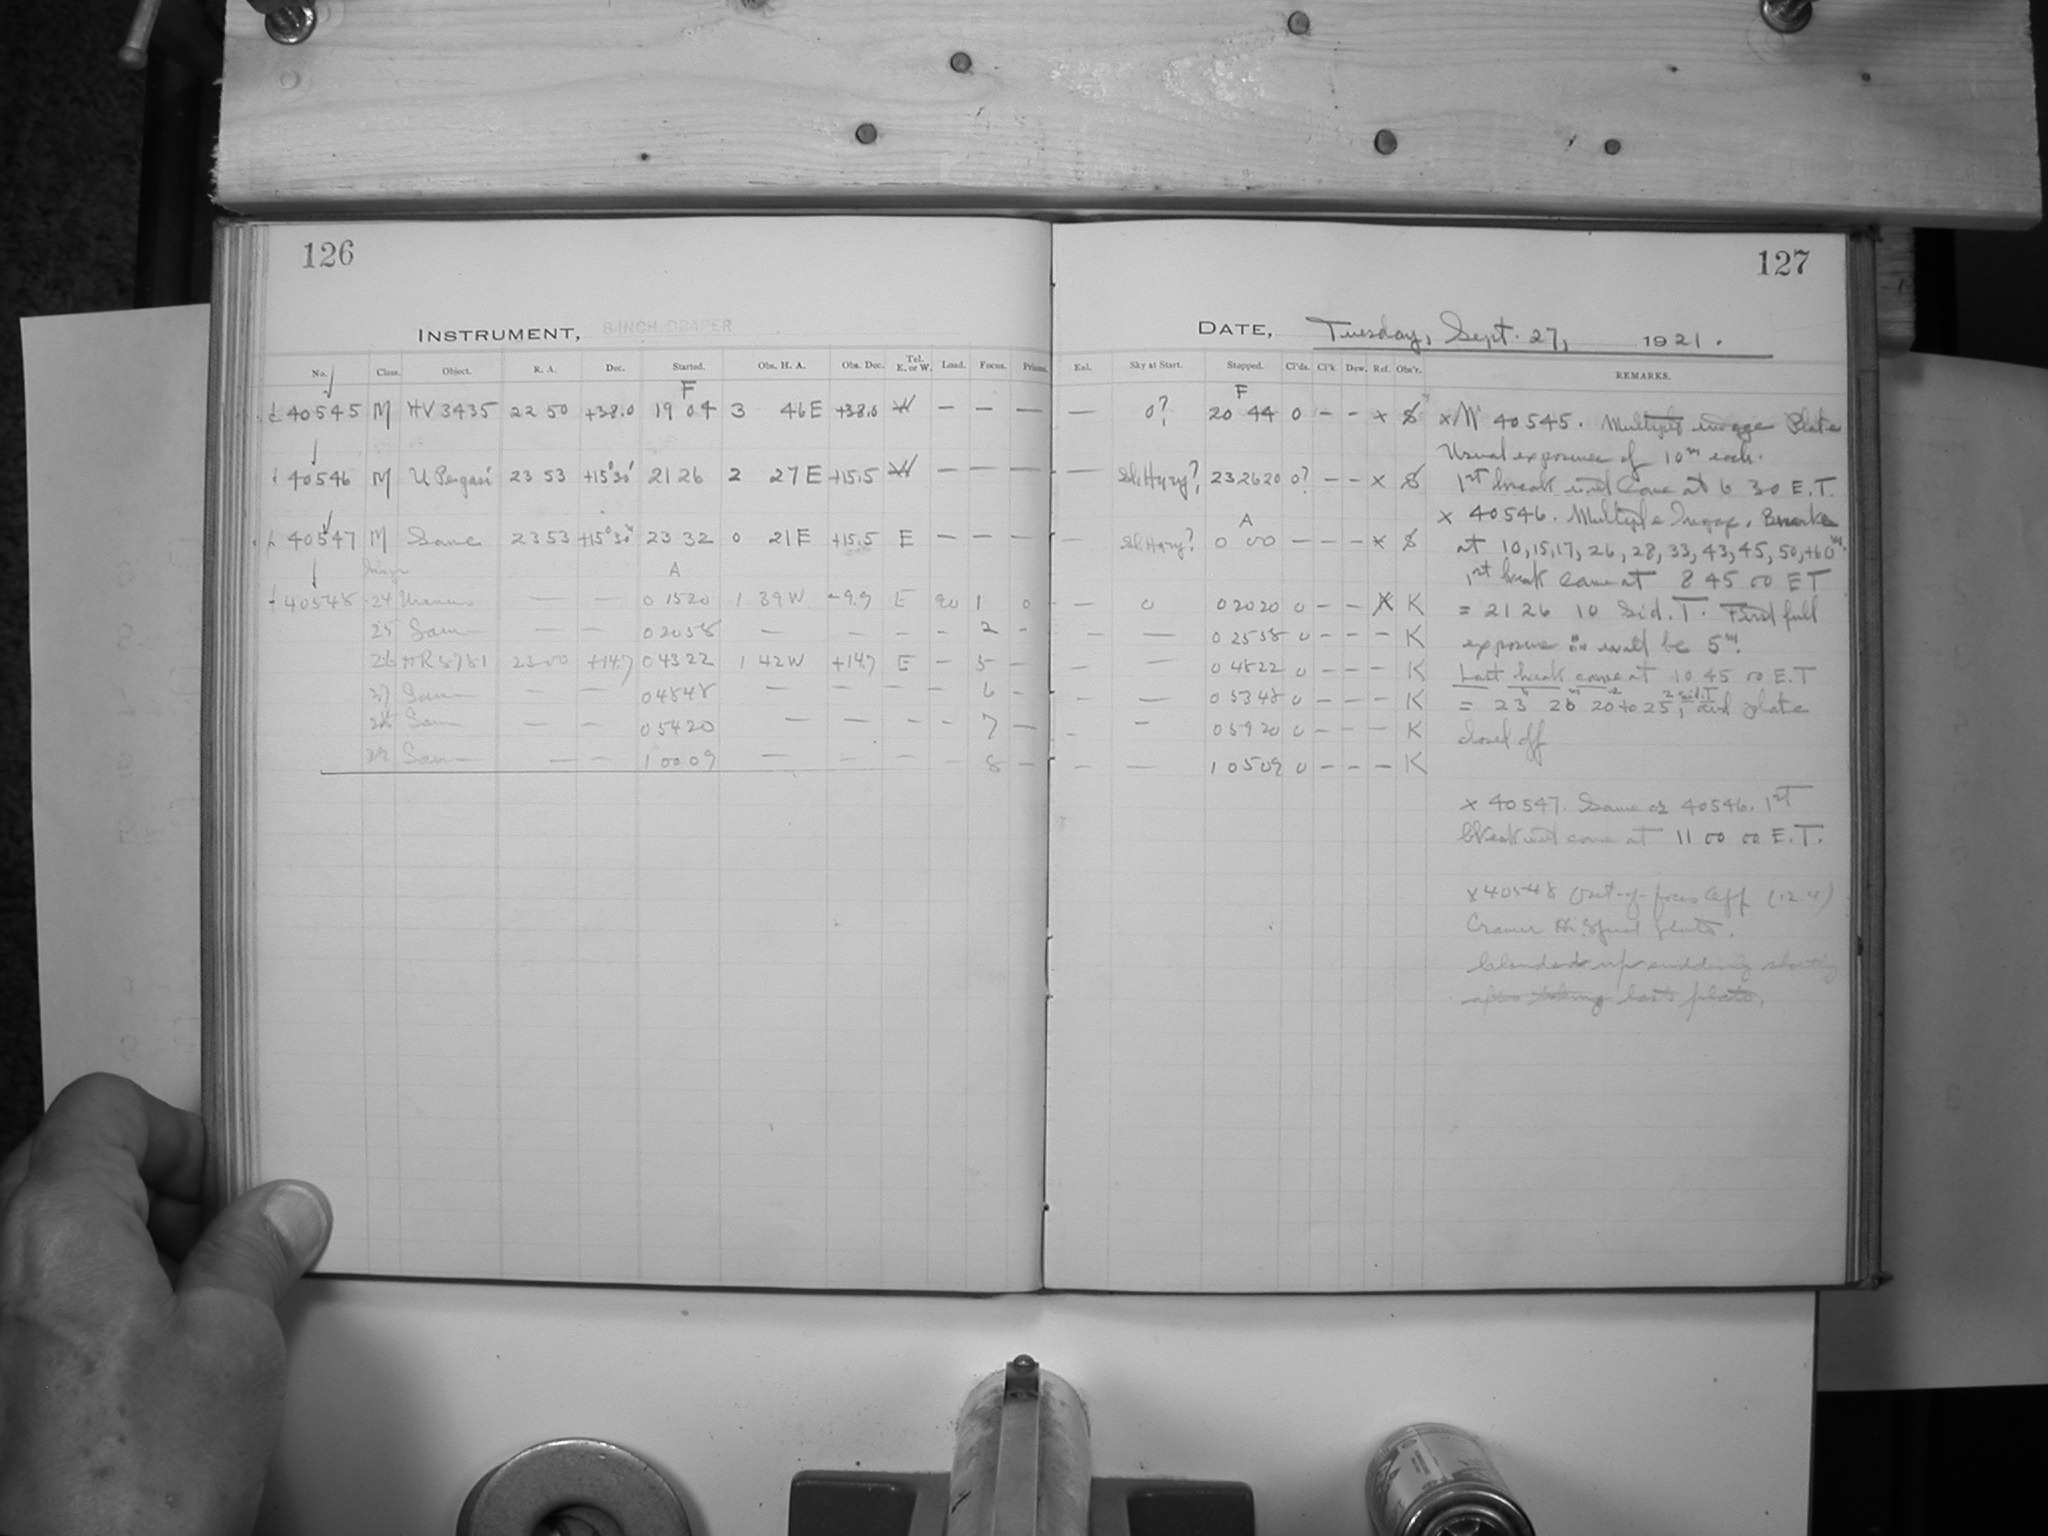 126
127
INSTRUMENT, 8-INCH DRAPER
DATE, Tuesday, Sept. 27, 1921.
No. Class. Object. R. A. Dec. Started. Obs. H. A. Obs. Dec. Tel. E. or W. Load. Focus. Prisms. Enl. Sky at Start. Stopped. Cl'ds. Cl'k. Dew. Ref. Obs'r. REMARKS.
F F
40545 M HV 3435 22 50 +38.0 19 04 3 46 E +38.0 W — — — — 0? 20 44 0 – – x S
40546 M U Pegasi 23 53 +15°30' 21 26 2 27 E +15.5 W — — — — Sl. Hazy? 23 26 20 0? – – x S
A
40547 M Same 23 53 +15°30' 23 32 0 21 E +15.5 E — — — — Sl. Hazy? 0 00 — – – x S
A
40548 24 Uranus — — 0 15 20 1 39 W -9.9 E 90 1 0 — 0 0 20 20 0 – – X K
25 Same — — 0 20 58 — — — — 2 – – — 0 25 58 0 – – – K
26 HR 8781 23 00 +14.7 0 43 22 1 42 W +14.7 E – 5 – — — 0 48 22 0 – – – K
27 Same — — 0 48 48 — — – – 6 – — 0 53 48 0 – – – K
28 Same — — 0 54 20 — — – – 7 — – – 0 59 20 0 – – – K
29 Same — — 1 00 09 — — – – 8 – – — 1 05 09 0 – – – K
x 40545. Multiple image Plate
Usual exposures of 10m each.
1st break will come at 6 30 E.T.
x 40546. Multiple Image. Breaks
at 10, 15, 17, 26, 28, 33, 43, 45, 50, +60m.
1st break came at 8 45 00 ET
= 21 26 10 Sid. T. First full
exposure will be 5m.
Last break came at 10 45 00 E.T
= 23 26 20 to 25, Sid. T and plate
closed off
x 40547. Same as 40546. 1st
break will come at 11 00 00 E.T.
x 40548 Out-of-focus
Cramer Hi Speed plate.
Clouded up suddenly shortly
after taking last plate.